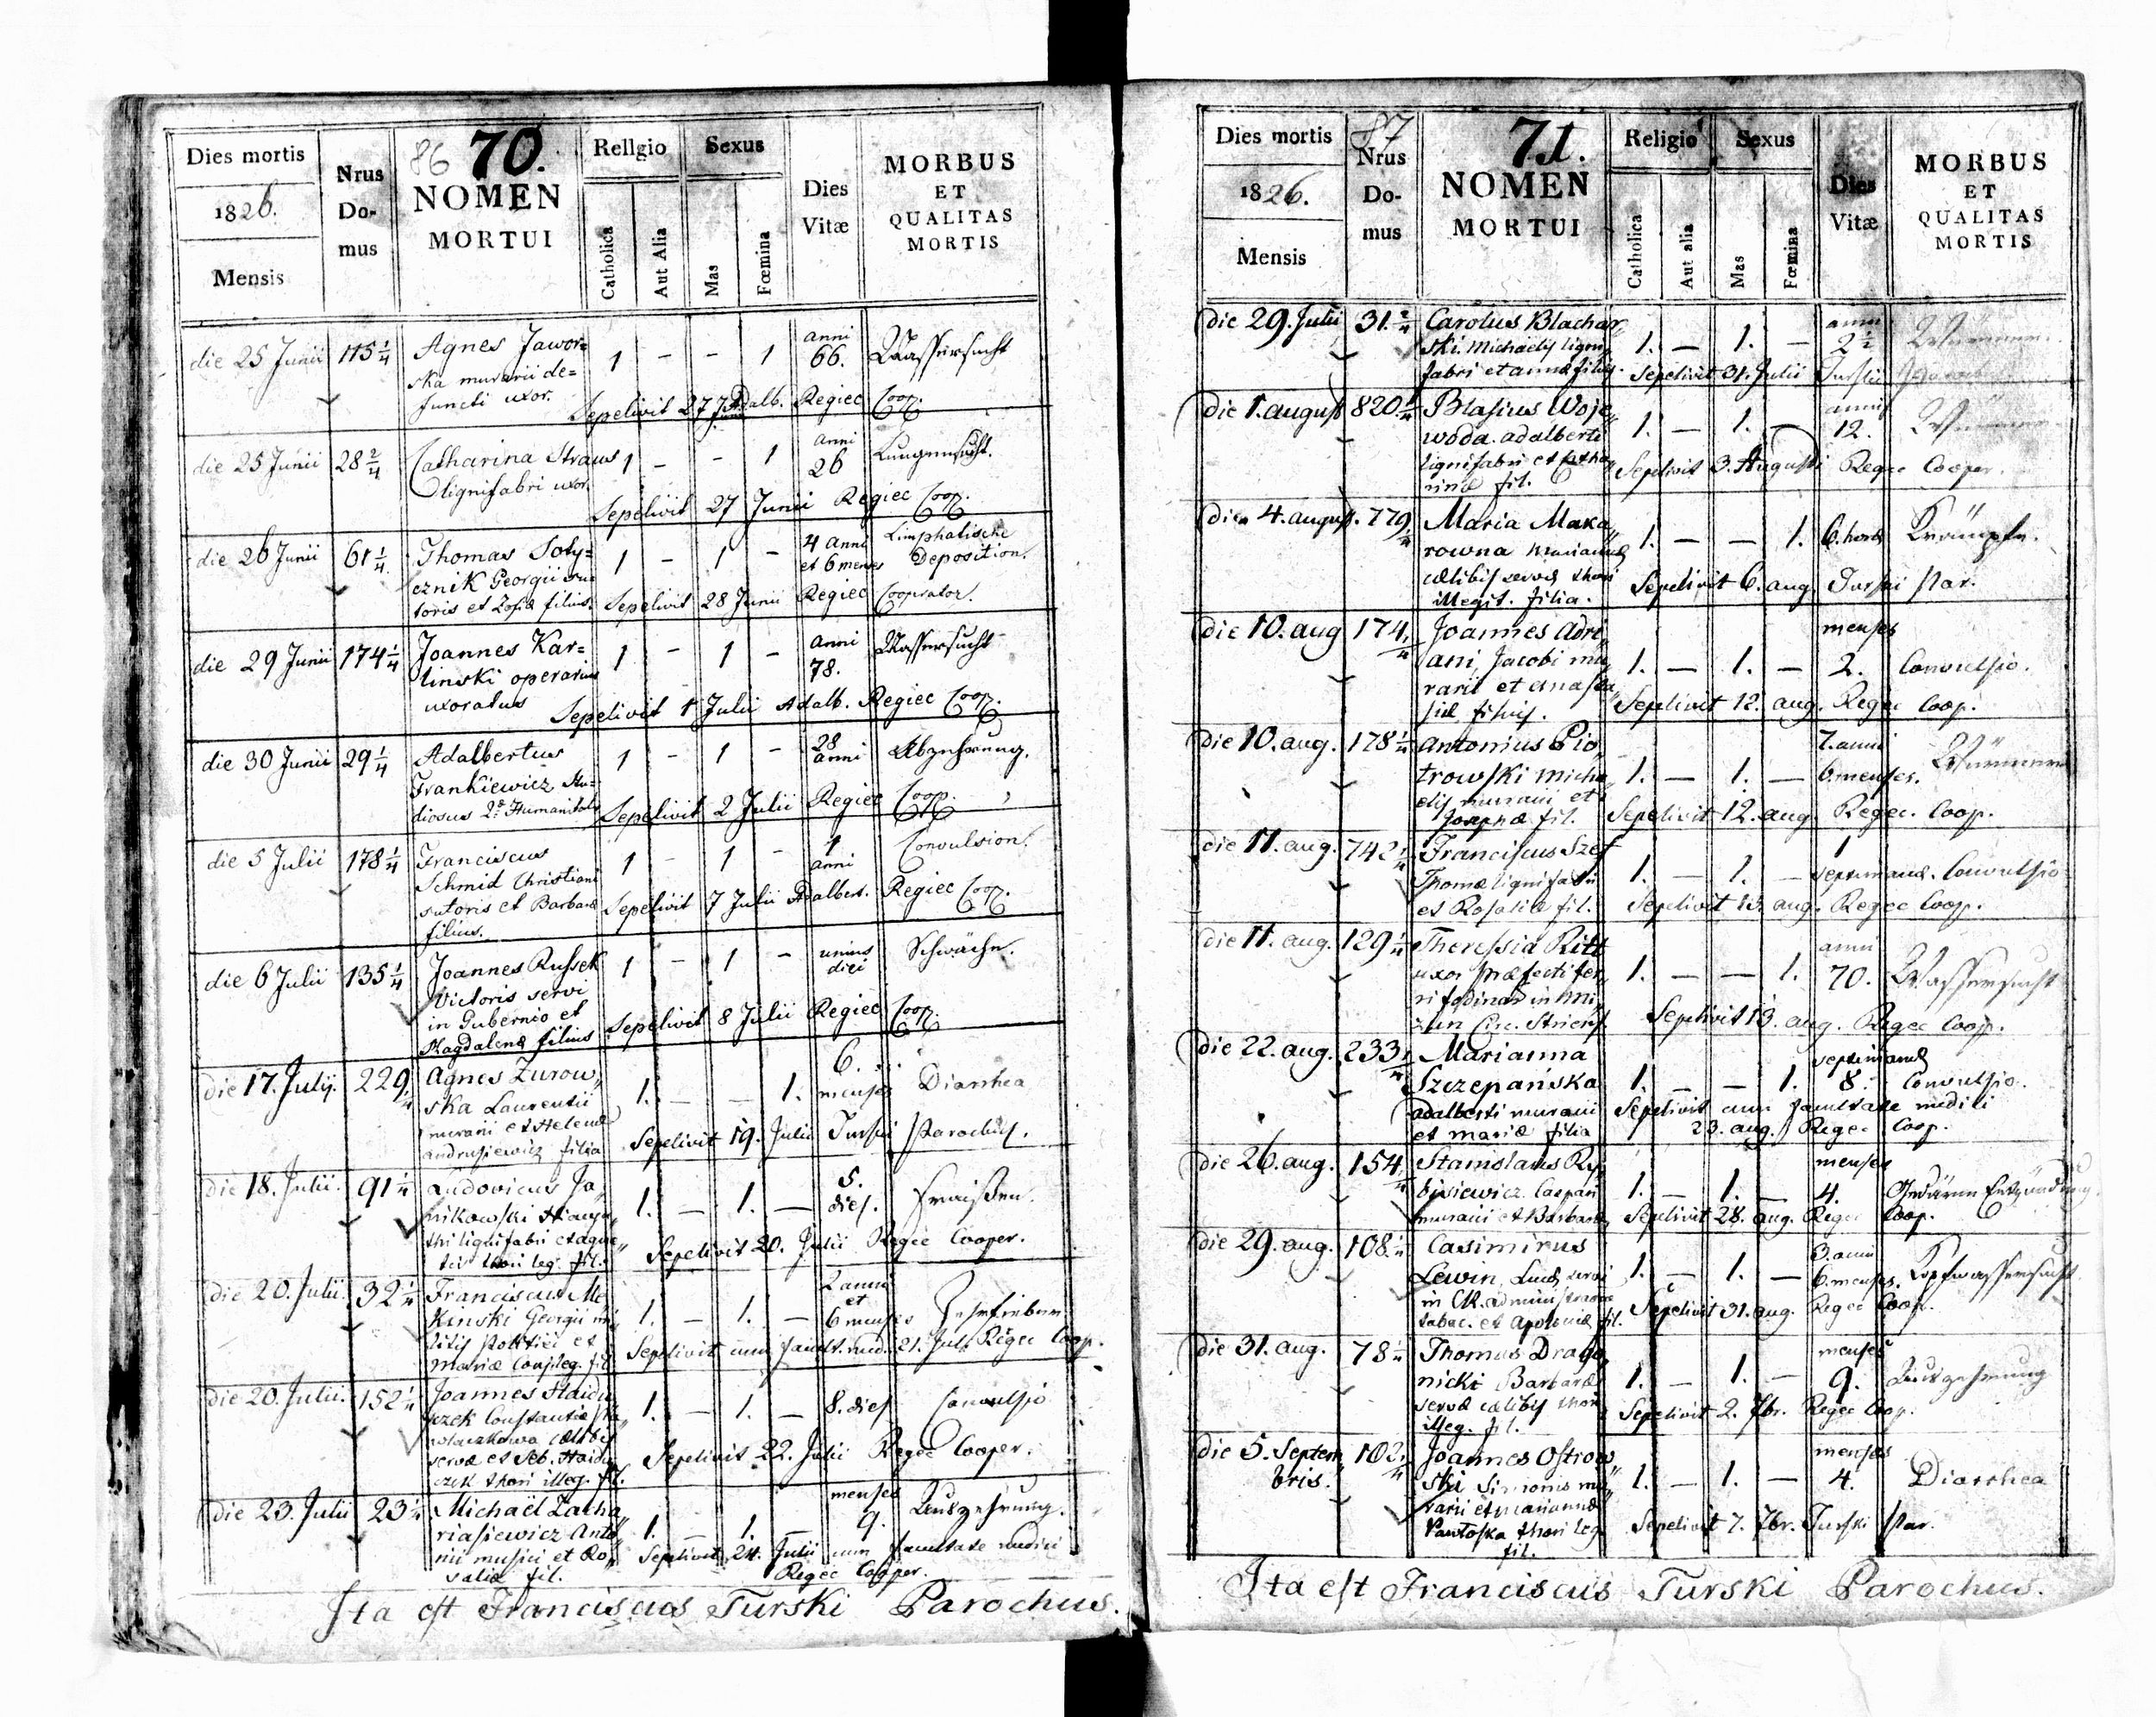 86 70.
Dies mortis
1826.
Mensis
Nrus
Do-
mus
NOMEN
MORTUI
Religio
Catholica
Aut Alia
Sexus
Mas
Fœmina
Dies
Vitæ
MORBUS
ET
QUALITAS
MORTIS
die 25 Junii 115 1/4 Agnes Jawor= 1 - - 1 anni 66. Wassersucht
ska murarii de=
functi uxor. Sepelivit 27 Junii Adalb. Regiec Coop.
die 25 Junii 28 2/4 Catharina Straus 1 - - 1 anni 26 Lungensucht.
lignifabri uxor.
Sepelivit 27 Junii Regiec Coop.
die 26 Junii 61 1/4 Thomas Soty= 1 - 1 - 4 anni et 6 menses Limphatische Deposition.
cznik Georgii su=
toris et Zofiæ filius. Sepelivit 28 Junii Regiec Cooprator.
die 29 Junii 174 1/4 Joannes Kar= 1 - 1 - anni 78. Wassersucht
linski operarius
uxoratus Sepelivit 1 Julii Adalb. Regiec Coop.
die 30 Junii 29 1/4 Adalbertus 1 - 1 - 28 anni Abzehrung.
Frankiewicz Stu=
diosus 2æ Humanitatis Sepelivit 2 Julii Regiec Coop.
die 5 Julii 178 1/4 Franciscus 1 - 1 - 1 anni Convulsion.
Schmid Christiani
sutoris et Barbaræ Sepelivit 7 Julii Adalbert. Regiec Coop.
filius.
die 6 Julii 135 1/4 Joannes Russek 1 - 1 - unius diei Schwäche.
Victoris servi
in Gubernio et
Magdalenæ filius Sepelivit 8 Julii Regiec Coop.
die 17. Julij. 229 1/4 Agnes Zurow„ 1. — — 1. 6. menses Diarrhea
ska Laurentii
murarii et Helenæ
Andrusiewicz filia Sepelivit 19. Julii Turski Parochus.
die 18. Julii. 91 1/4 Ludovicus Ja„ 1. — 1. — 5. dies. Fraißen.
nikowski Hiacyn„
thi lignifabri et Agne„
tis thori leg. fil. Sepelivit 20. Julii Regec Cooper.
die 20. Julii. 32 1/4 Franciscus Me„ 1. — 1. — 2 anni et 6 menses Zehrfieber
kinski Georgii mi„
litis politiei et
Mariæ Conj. leg. fil. Sepelivit cum facult. med. 21. Juli Regec Coop.
die 20. Julii. 152 1/4 Joannes Haidu„ 1. — 1. — 8. dies Convulsio
czek Constantiæ
cælibis
servæ et Seb. Haidu„ Sepelivit 22. Julii Regec Cooper.
czek thori illeg. fil.
die 23. Julii 23 1/4 Michaël Zacha„ 1. — 1. menses 9. Auszehrung.
riasiewicz Anto„
nii musici et Ro„ Sepelivit 24. Julii cum facultate medici
saliæ fil. Regec Cooper.
Ita est Franciscus Turski Parochus.
87 71.
Dies mortis
1826.
Mensis
Nrus
Do-
mus
NOMEN
MORTUI
Religio
Catholica
Aut alia
Sexus
Mas
Fœmina
Dies
Vitæ
MORBUS
ET
QUALITAS
MORTIS
die 29. Julii 31. 2/4 Carolus Blachar„ 1. — 1. — anni 2 1/2 Würmer.
ski. Michaelis ligni„
fabri et Annæ filius. Sepelivit 31. Julii Turski
die 1. august 820 1/4 Blasius Woje„ 1. — 1. — annis 12.
woda. Adalberti
lignifabri et Catha„ Sepelivit 3. Augusti Regec Cooper.
rinæ fil.
die 4. august. 779 1/4 Maria Maka„ 1. — — 1. 6. horas Krämpfe.
rowna Mariannæ
cælibis servæ thori Sepelivit 6. aug Turski Par.
illegit. filia.
die 10. aug 174 1/4 Joannes Adri„ 1. — 1. — menses 2. Convulsio.
ani, Jacobi mu„
rarii et Anasta„ Sepelivit 12. aug. Regec Coop.
siæ filius.
die 10. aug. 178 1/4 Antonius Pio„ 1. — 1. — 7. anni 6. menses. Würmer
trowski Micha„
elis murarii et
Josephæ fil. Sepelivit 12. aug. Regec. Coop.
die 11. aug. 742 1/4 Franciscus Szef 1. — 1. — 1 septimanæ. Convulsio
Thomæ lignifabri
et Rosaliæ fil. Sepelivit 13. aug. Regec Coop.
die 11. aug. 129 1/4 Theressia Ritt 1. — — 1. anni 70. Wassersucht
uxor præfecti fer„
ri fodinar. in
Circ. Sepelivit 13. aug. Regec Coop.
die 22. aug. 233 1/4 Marianna 1. — — 1. septimanæ 8. Convulsio.
Szczepańska
Adalberti murarii Sepelivit cum facultate medici
et Mariæ filia 23. aug. Regec Coop.
die 26. aug. 154 1/4 Stanislaus Ry„ 1. — 1. — menses 4. Gedärm Entzündung.
bisiewicz Caspari
murarii et Barbaræ Sepelivit 28. aug. Regec Coop.
die 29. aug. 108 1/4 Casimirus 1. — 1. — 3. anni 6. menses. Kopfwassersucht
Lewin, Lucæ servi
in CR. administratione
tabac. et Apoloniæ fil. Sepelivit 31. aug. Regec Coop.
die 31. aug. 78 1/4 Thomas Drago„ 1. — 1. — menses 9. Auszehrung
nicki Barbaræ
servæ cælibis thori Sepelivit 2. 7br. Regec Coop.
illeg. fil.
die 5. Septem„ 102 1/4 Joannes Ostrow„ 1. — 1. — menses 4. Diarrhea
bris. ski Simonis mu„
rarii et Mariannæ
Pawloska thori leg. Sepelivit 7. 7br. Turski Par.
fil.
Ita est Franciscus Turski Parochus.